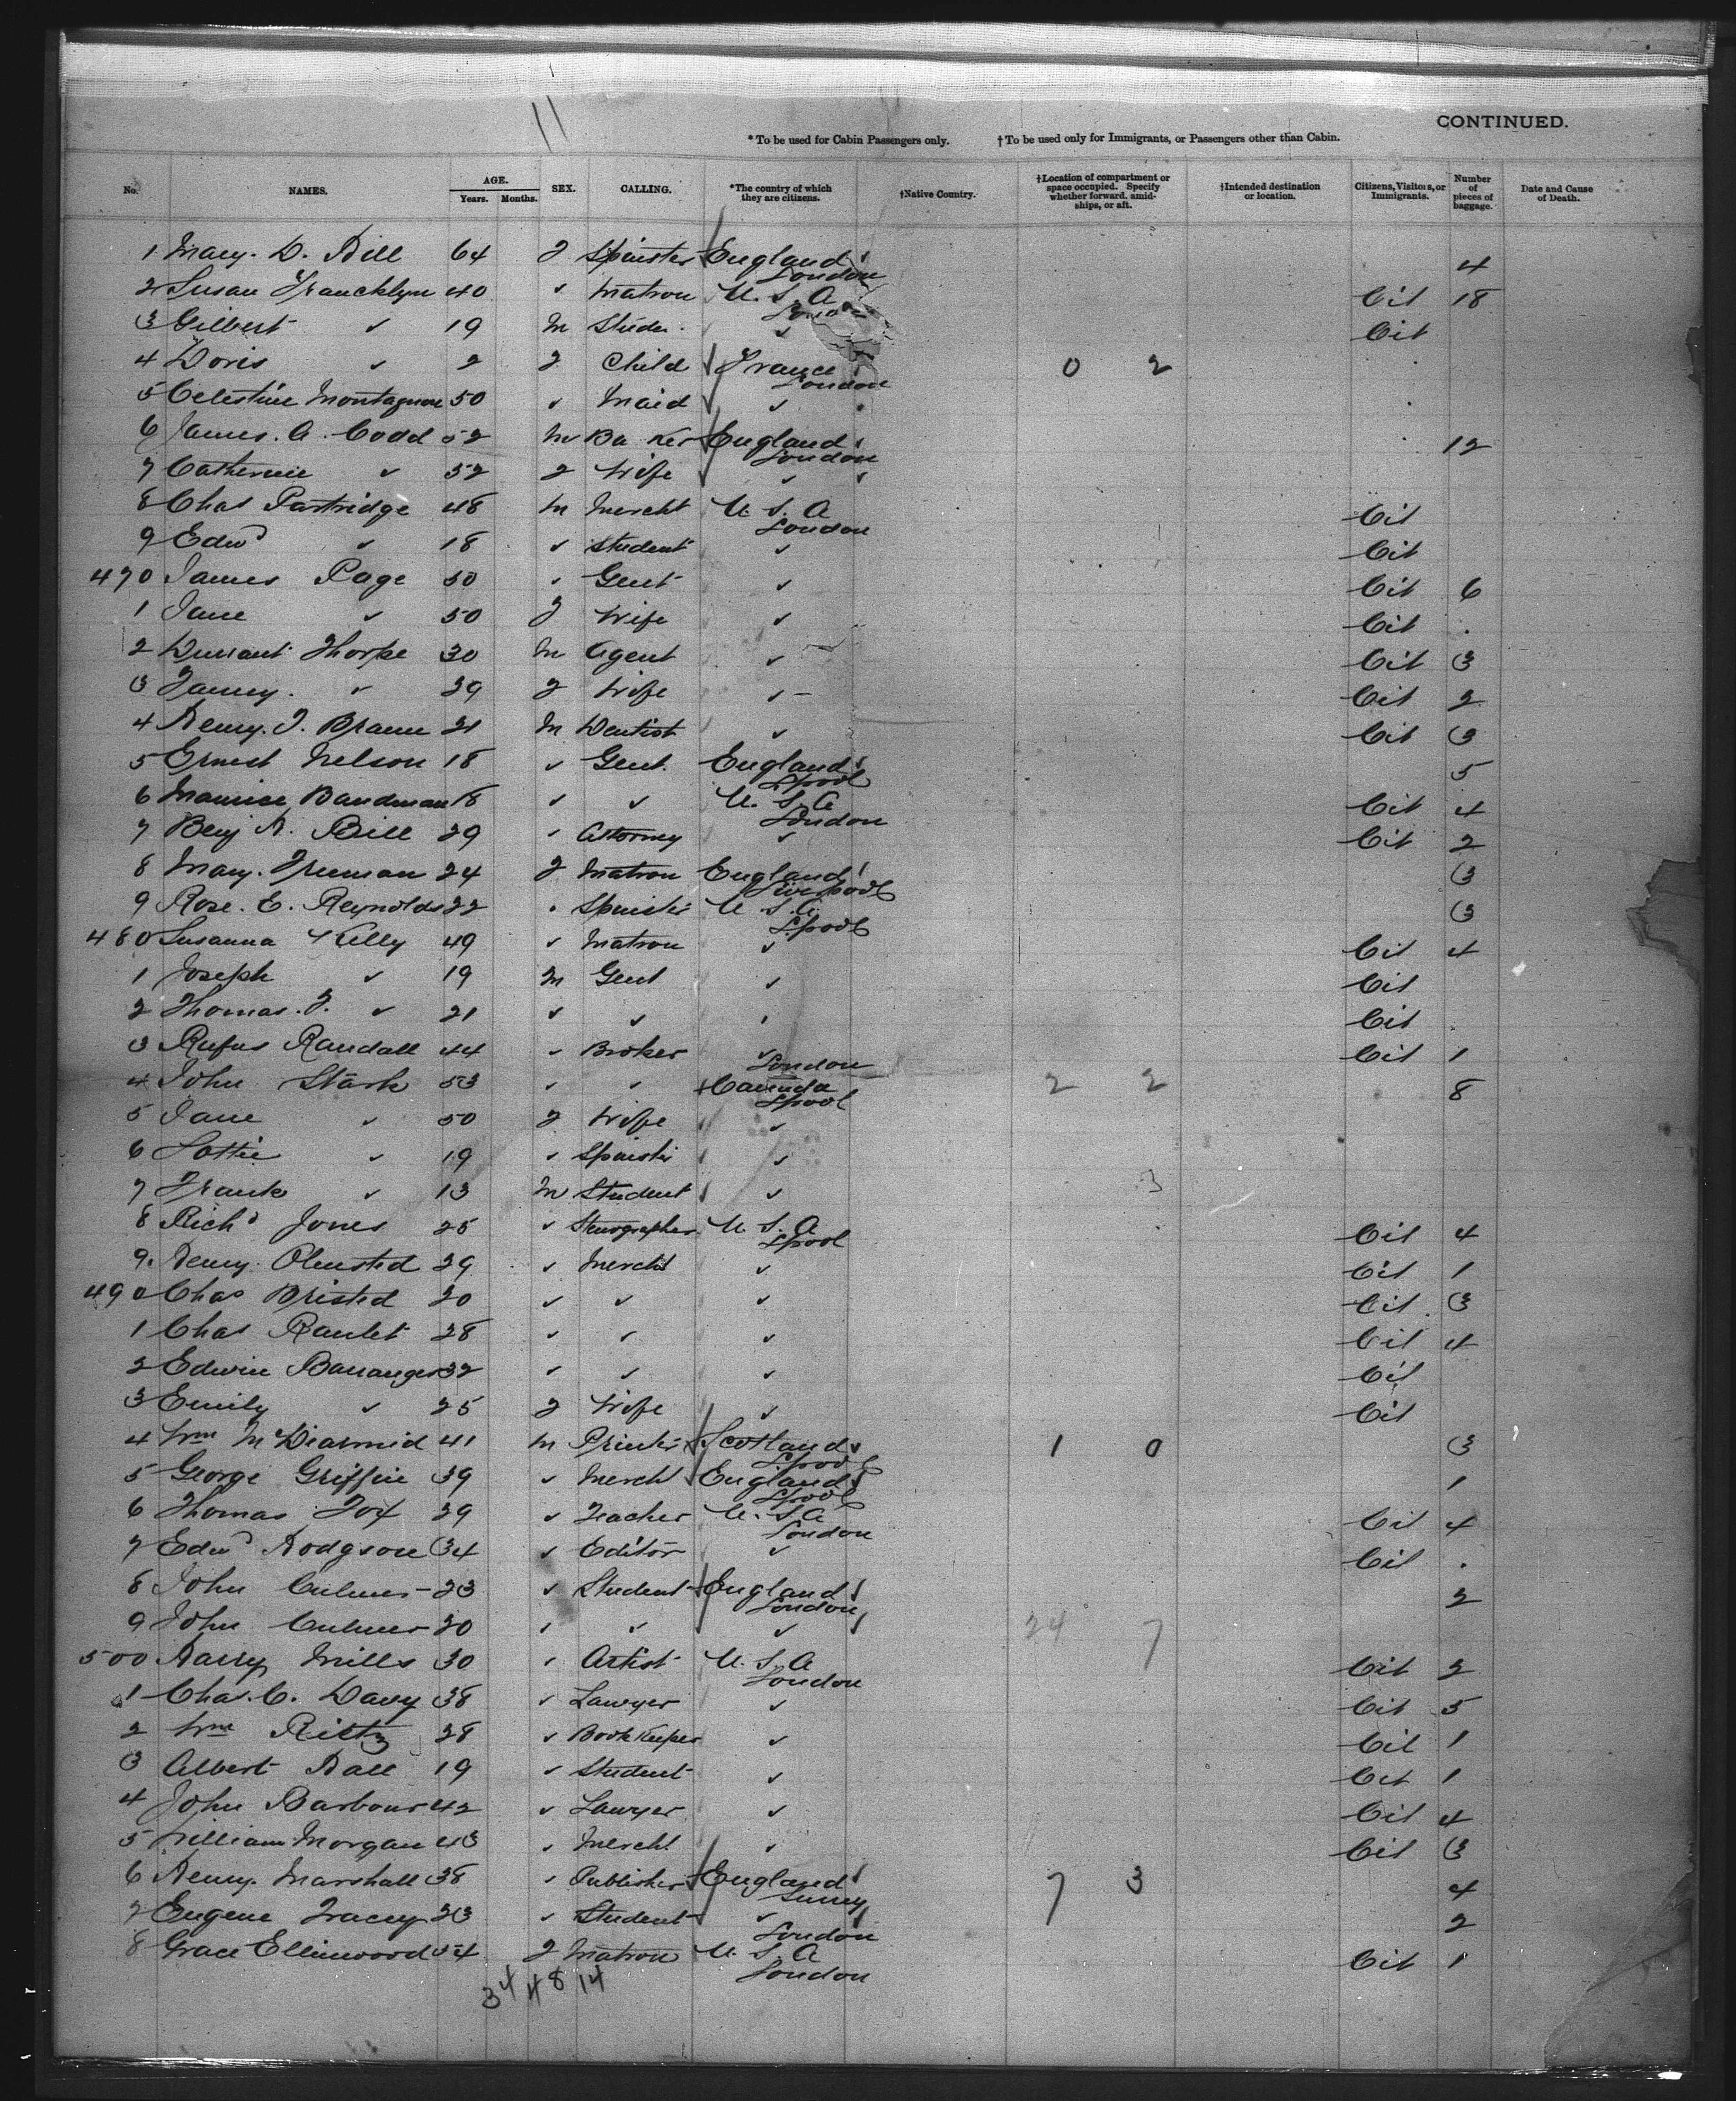 11
CONTINUED.
* To be used for Cabin Passengers only. † To be used only for Immigrants, or Passengers other than Cabin.
No. NAMES. AGE. Years. Months. SEX. CALLING. *The country of which they are citizens. †Native Country. †Location of compartment or space occupied. Specify whether forward, amidships, or aft. †Intended destination or location. Citizens, Visitors, or Immigrants. Number of pieces of baggage. Date and Cause of Death.
1 Mary. D. Hill 64 F Spinster England London 4
2 Susan Francklyn 40 ✓ Matron U.S.A London Cit 18
3 Gilbert ✓ 19 M Studen ✓ Cit
4 Doris ✓ 2 F Child France London 0 2
5 Celestine Montagnon 50 ✓ Maid ✓
6 James. A. Codd 52 M Ba ker England London 12
7 Catherine ✓ 52 F Wife ✓
8 Chas Partridge 48 M Mercht U.S.A London Cit
9 Edwd ✓ 18 ✓ Student ✓ Cit
470 James Page 50 ✓ Gent ✓ Cit 6
1 Jane ✓ 50 F Wife ✓ Cit
2 Durrant Thorpe 30 M Agent ✓ Cit 3
3 Fanny. ✓ 29 F Wife ✓ Cit 2
4 Henry. F. Braun 21 M Dentist ✓ Cit 3
5 Ernest Nelson 18 ✓ Gent. England Lpool 5
6 Maurice Bandman 18 ✓ ✓ U.S.A London Cit 4
7 Benj H. Bill 29 ✓ Attorney ✓ Cit 2
8 Mary. Freeman 24 F Matron England Liverpool 3
9 Rose. E. Reynolds 22 ✓ Spinster U.S.A. Lpool 3
480 Susanna Kelly 49 ✓ Matron ✓ Cit 4
1 Joseph ✓ 19 M Gent ✓ Cit
2 Thomas. F. ✓ 21 ✓ ✓ ✓ Cit
3 Rufus Randall 44 ✓ Broker ✓ London Cit 1
4 John Stark 53 ✓ ✓ Canada Lpool 2 2 8
5 Jane ✓ 50 F Wife ✓
6 Lottie ✓ 19 ✓ Spinster ✓
7 Frank ✓ 13 M Student ✓ 3
8 Richd Jones 25 ✓ Stenographer U.S.A Lpool Cit 4
9. Henry Olmsted 29 ✓ Mercht ✓ Cit 1
490 Chas Bristed 20 ✓ ✓ ✓ Cit 3
1 Chas Rantet 28 ✓ ✓ ✓ Cit 4
2 Edwin Barranger 32 ✓ ✓ ✓ Cit
3 Emily ✓ 25 F Wife ✓ Cit
4 Wm McDiarmid 41 M Printer Scotland Lpool 1 0 3
5 George Griffin 39 ✓ Mercht England Lpool 1
6 Thomas Fox 29 ✓ Teacher U.S.A London Cit 4
7 Edwd Hodgson 34 ✓ Editor ✓ Cit
8 John Culmer 23 ✓ Student England London 2
9 John Culmer 20 ✓ ✓ ✓ 24 7
500 Harry Mills 30 ✓ Artist U.S.A London Cit 2
1 Chas. C. Davy 38 ✓ Lawyer ✓ Cit 5
2 Wm Riltz 28 ✓ Book Keeper ✓ Cit 1
3 Albert Hall 19 ✓ Student ✓ Cit 1
4 John Barbour 42 ✓ Lawyer ✓ Cit 4
5 William Morgan 43 ✓ Mercht ✓ Cit 3
6 Henry. Marshall 38 ✓ Publisher England Surrey 7 3 4
7 Eugene Tracey 23 ✓ Student ✓ London 2
8 Grace Ellinwood 54 F Matron U.S.A London Cit 1
34 48 14